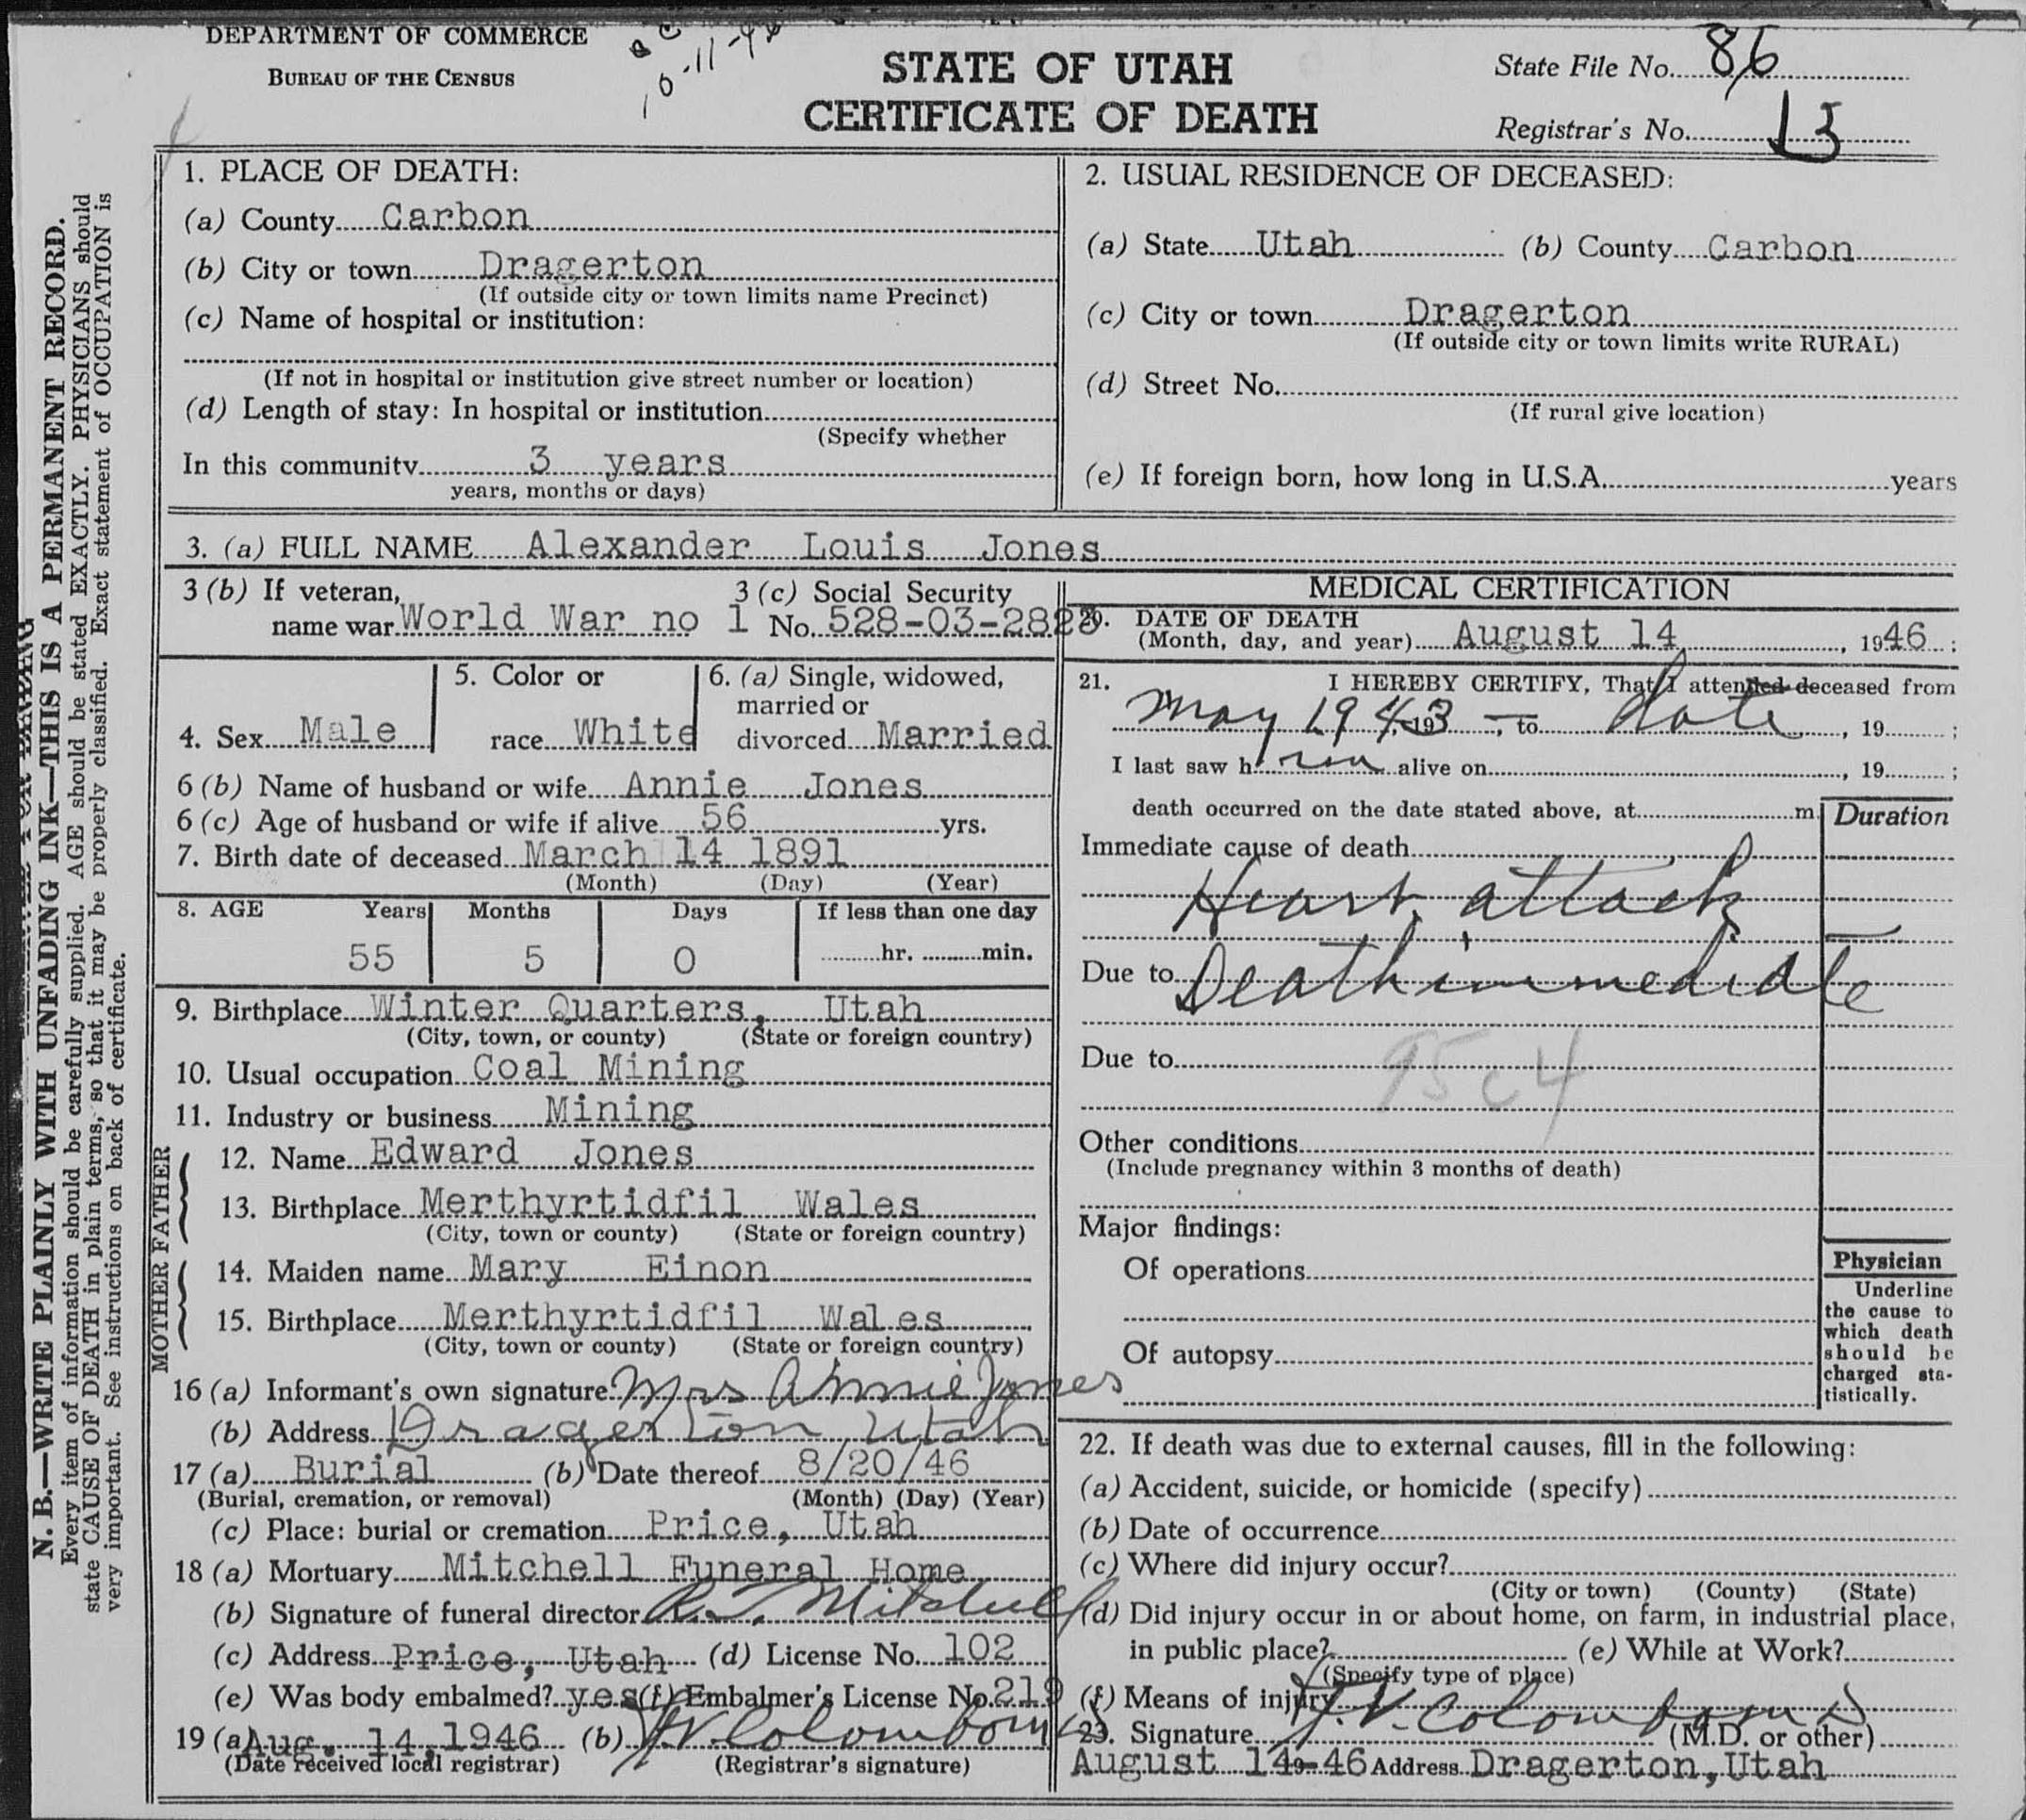 DEPARTMENT OF COMMERCE
BUREAU OF THE CENSUS
10-11-46
STATE OF UTAH
CERTIFICATE OF DEATH
State File No. 86
Registrar's No. 13
N. B.—WRITE PLAINLY WITH UNFADING INK—THIS IS A PERMANENT RECORD.
Every item of information should be carefully supplied. AGE should be stated EXACTLY. PHYSICIANS should
state CAUSE OF DEATH in plain terms, so that it may be properly classified. Exact statement of OCCUPATION is
very important. See instructions on back of certificate.
1. PLACE OF DEATH:
(a) County Carbon
(b) City or town Dragerton
(If outside city or town limits name Precinct)
(c) Name of hospital or institution:
(If not in hospital or institution give street number or location)
(d) Length of stay: In hospital or institution
(Specify whether
In this community 3 years
years, months or days)
2. USUAL RESIDENCE OF DECEASED:
(a) State Utah (b) County Carbon
(c) City or town Dragerton
(If outside city or town limits write RURAL)
(d) Street No.
(If rural give location)
(e) If foreign born, how long in U.S.A. years
3. (a) FULL NAME Alexander Louis Jones
3 (b) If veteran, 3 (c) Social Security
name war World War no 1 No. 528-03-2823
4. Sex Male
5. Color or
race White
6. (a) Single, widowed,
married or
divorced Married
6 (b) Name of husband or wife Annie Jones
6 (c) Age of husband or wife if alive 56 yrs.
7. Birth date of deceased March 14 1891
(Month) (Day) (Year)
8. AGE Years Months Days If less than one day
55 5 0 hr. min.
9. Birthplace Winter Quarters, Utah
(City, town, or county) (State or foreign country)
10. Usual occupation Coal Mining
11. Industry or business Mining
FATHER
12. Name Edward Jones
13. Birthplace Merthyrtidfil Wales
(City, town or county) (State or foreign country)
MOTHER
14. Maiden name Mary Einon
15. Birthplace Merthyrtidfil Wales
(City, town or county) (State or foreign country)
16 (a) Informant's own signature Mrs Annie Jones
(b) Address Dragerton Utah
17 (a) Burial (b) Date thereof 8/20/46
(Burial, cremation, or removal) (Month) (Day) (Year)
(c) Place: burial or cremation Price, Utah
18 (a) Mortuary Mitchell Funeral Home
(b) Signature of funeral director Mitchell
(c) Address Price, Utah (d) License No. 102
(e) Was body embalmed? yes (f) Embalmer's License No. 219
19 (a) Aug. 14, 1946 (b)
(Date received local registrar) (Registrar's signature)
MEDICAL CERTIFICATION
20. DATE OF DEATH
(Month, day, and year) August 14, 1946;
21. I HEREBY CERTIFY, That I attended deceased from
May 1943, 19 to date, 19 ;
I last saw h alive on , 19 ;
death occurred on the date stated above, at m.
Duration
Immediate cause of death
Heart attack
Due to Death immediate
Due to
95c4
Other conditions
(Include pregnancy within 3 months of death)
Major findings:
Of operations
Of autopsy
Physician
Underline
the cause to
which death
should be
charged sta-
tistically.
22. If death was due to external causes, fill in the following:
(a) Accident, suicide, or homicide (specify)
(b) Date of occurrence
(c) Where did injury occur?
(City or town) (County) (State)
(d) Did injury occur in or about home, on farm, in industrial place,
in public place? (e) While at Work?
(Specify type of place)
(f) Means of injury
23. Signature (M.D. or other)
August 14 19-46 Address Dragerton, Utah